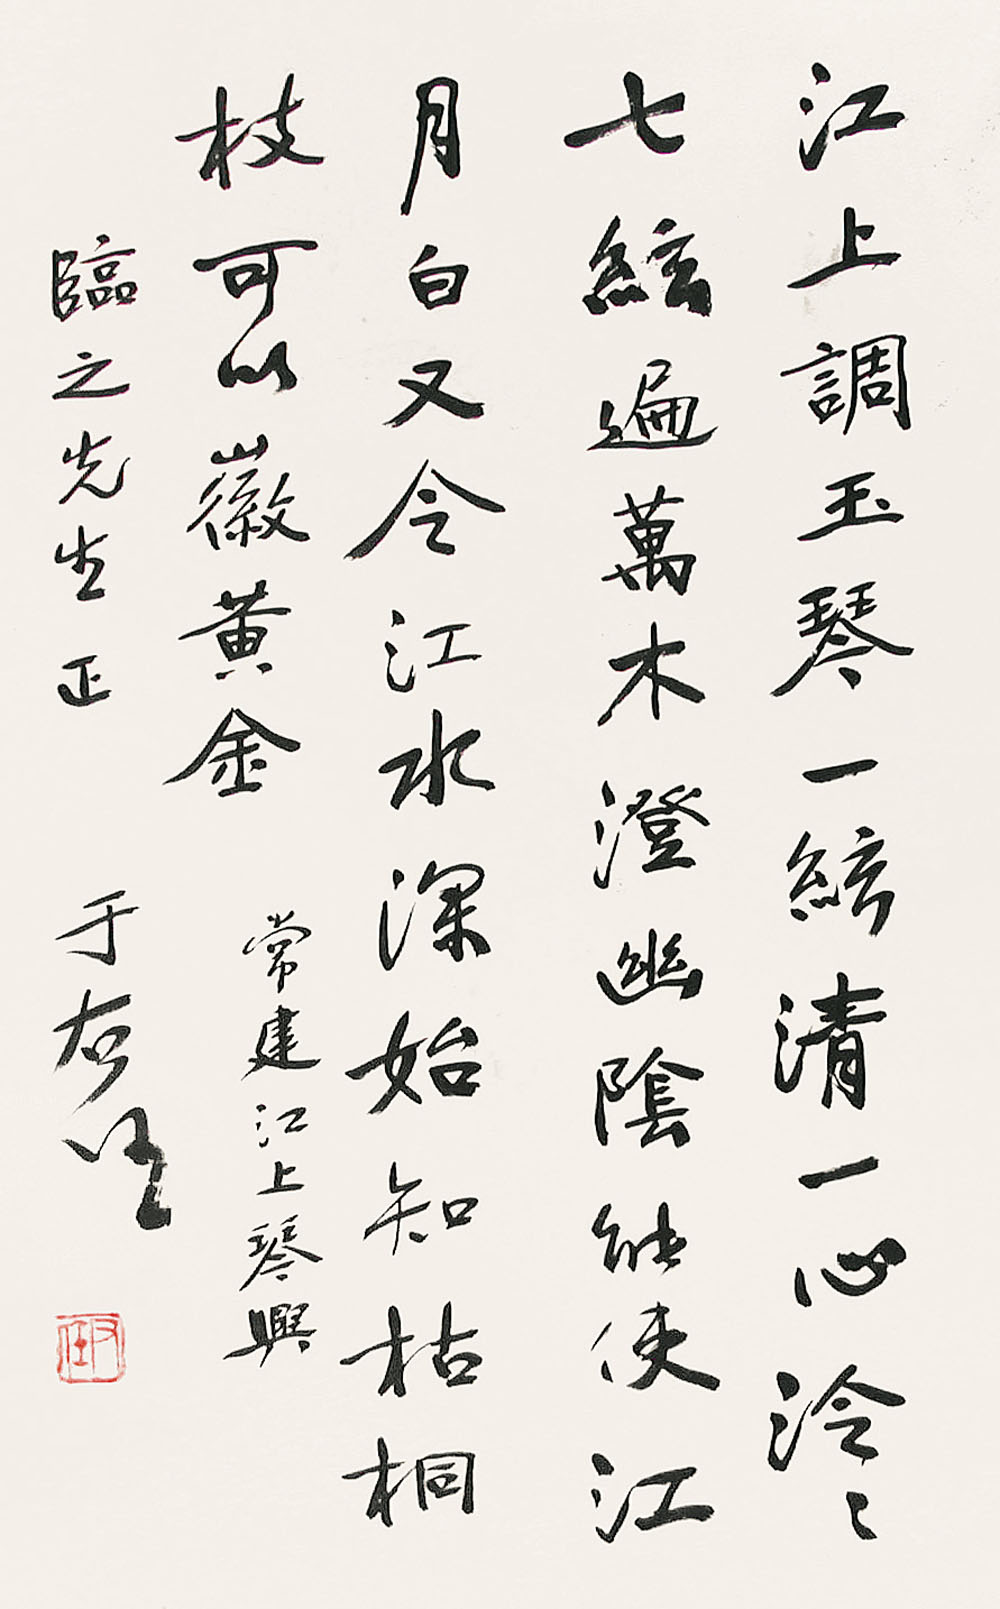 江上調玉琴一絃清一心泠〻
七絃遍萬木澄幽陰能使江
月白又令江水深始知枯桐
枝可以徽黄金
常建江上琴興
臨之先生正
于右任
右任